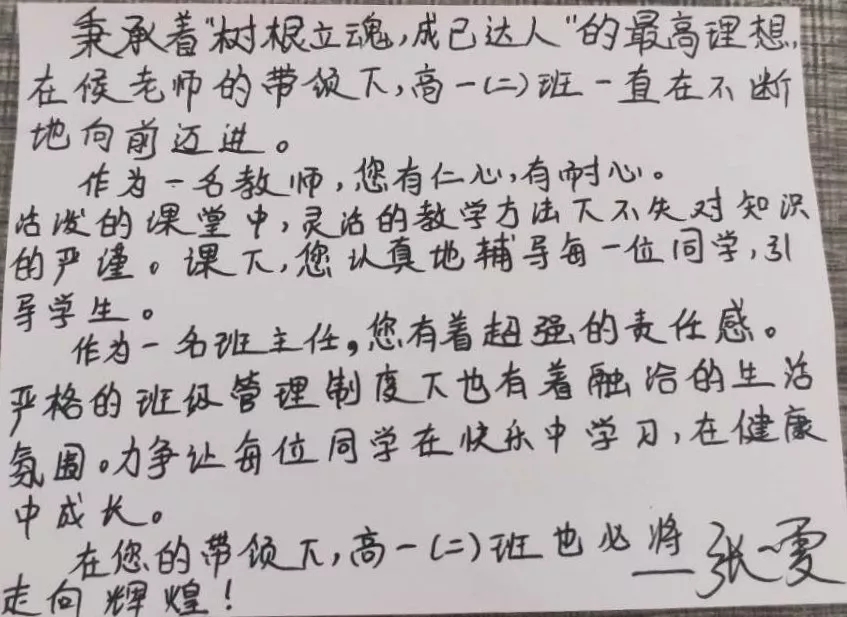 秉承着"树根立魂,成已达人"的最高理想,
在侯老师的带领下,高一(二)班一直在不断
地向前迈进。
作为一名教师,您有仁心,有耐心。
活泼的课堂中,灵活的教学方法下不失对知识
的严谨。课下,您认真地辅导每一位同学,引
导学生。
作为一名班主任,您有着超强的责任感。
严格的班级管理制度下也有着融洽的生活
氛围。力争让每位同学在快乐中学习,在健康
中成长。
在您的带领下,高一(二)班也必将
走向辉煌!
——张雯